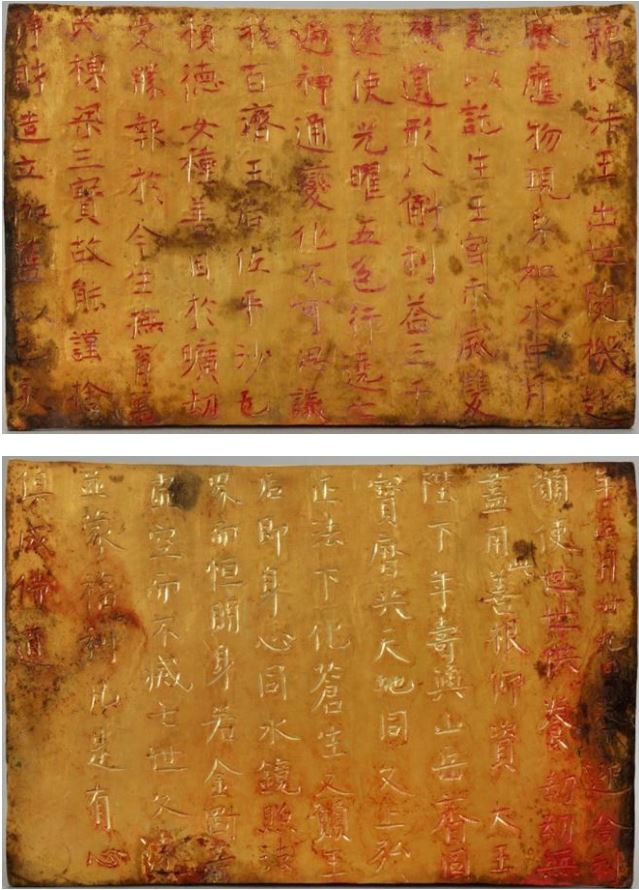 竊以法王出世隨機赴
感應物現身如水中月
是以託生王宮示滅雙
樹遺形八斛利益三千
遂使光曜五色行遶七
遍神通變化不可思議
我百濟王后佐平沙乇
積德女種善因於曠劫
受勝報於今生撫育萬
民棟梁三寶故能謹捨
淨財造立伽藍以己亥
年正月廿九日奉迎舍利
願使世世供養劫劫無
盡用此善根仰資大王
陛下年壽與山岳齊固
寶曆共天地同久上弘
正法下化蒼生又願王
后即身心同水鏡照法
界而恒明身若金剛等
虛空而不滅七世久遠
並蒙福利凡是有心
俱成佛道